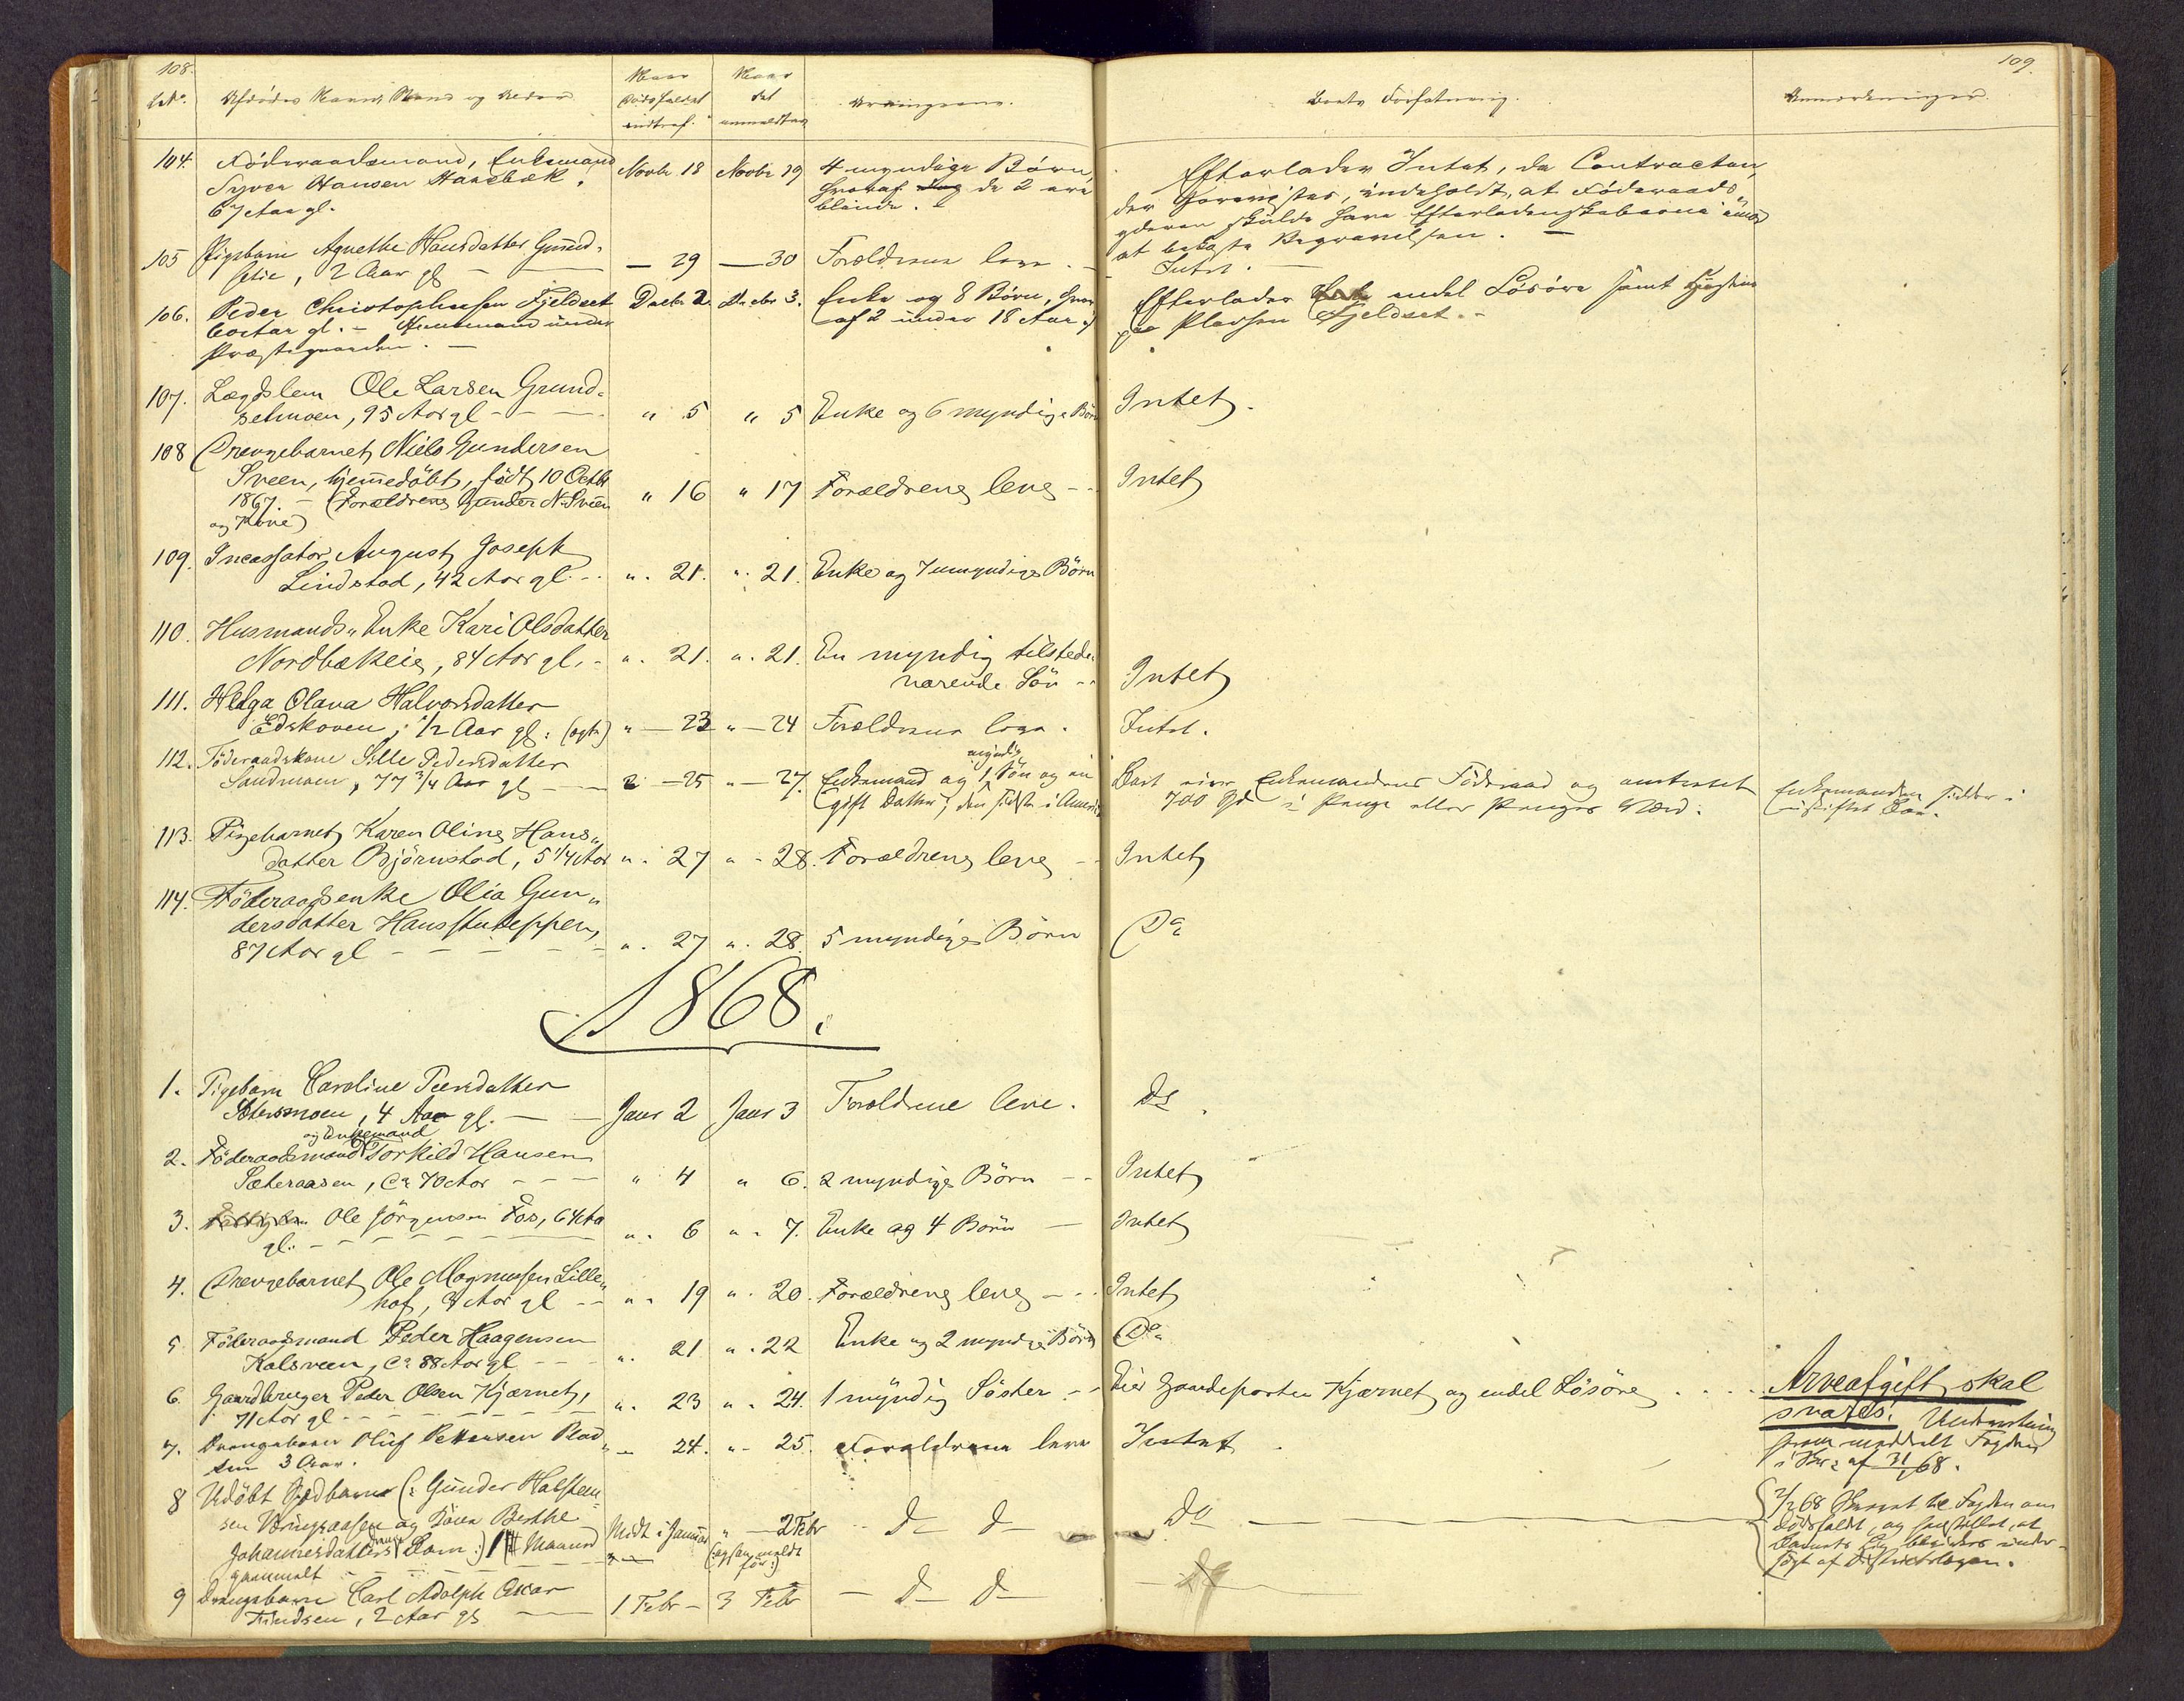 108.
109.
No.
Afdødes Navn, Stand og Alder
Naar
Dødsfaldet
indtraf.
Naar
det
anmeldtes
Arvingerne.
Boets Forfatning.
Anmærkninger.
104. Föderaadsmand, Enkemand
Syver Hansen Hansebæk,
67 Aar gl.
Novbr 18 Novbr 19
4 myndige Börn,
hvoraf de 2 ere
blinde.
Efterlader Intet, da Contracten,
der foreviistes, indeholdt, at Föderaads-
yderen skulde have Efterladenskaberne imod
at bekoste Begravelsen. —
105 Pigebarn Agnethe Hansdatter Grund-
setie, 2 Aar gl — 29 — 30 Forældrene leve. — Intet. —
106. Peder Christophersen Fjeldset
Aar gl. – Huusmand under
Præstegaarden. —
Decbr 2. Decbr 3.
Enke og 8 Börn, hvor-
af 2 under 18 Aar.
Efterlader endel Lösöre samt Huusene
paa Pladsen Fjeldset. -
107. Lægdslem Ole Larsen Grund-
setmoen, 95 Aar gl - - -
" 5 " 5 Enke og 6 myndige Börn Intet.
108 Drengebarnet Niels Gundersen
Sveen, hjemmedöbt, födt 10 Octbr
1867. – (Forældrene Gunder N. Sveen
og Kone)
" 16 " 17 Forældrene leve - - Intet
109. Incassator August Joseph
Lindstad, 42 Aar gl. - -
". 21. ". 21. Enke og 7 umyndige Börn
110. Husmands" Enke Kari Olsdatter
Nordbækeie, 84 Aar gl. -
". 21. ". 21. En myndig tilstede-
værende Sön - - Intet
111. Helga Olava Halvorsdatter
Edskoven, 1/2 Aar gl. (ægte)
" — 23 " — 24 Forældrene leve. Intet.
112. Föderaadskone Sille Pedersdatter
Sandmoen, 77 3/4 Aar gl —
— 25 " — 27.
myndig
Enkemand og 1 Sön og en
gift Datter, den sidste i Amerika
Boet eier Enkemandens Föderaad og omtrent
700 Spd i Penge eller Penges Værd.
Enkemanden sidder i
uskiftet Bo.
113. Pigebarnet Karen Oline Hans"
datter Björnstad, 5 1/4 Aar
". 27 " - 28. Forældrene leve - - Intet
114. Föderaadsenke Olia Gun"
dersdatter Hansstuteppen,
87 Aar gl - - - -
". 27 ". 28. 5 myndige Börn Do
1868.
1. Pigebarn Caroline Peersdatter
Sætersmoen, 4 Aar gl. — —
Janr 2 Janr 3 Forældrene leve. Do.
og Enkemand
2. Föderaadsmand Torkild Hansen
Sæteraasen, Ca 70 Aar - - -
" 4 " 6. 2 myndige Börn - - Intet
3. Ole Jörgensen Fos, 64 Aar
gl. - - - - -
". 6 ". 7. Enke og 4 Börn — Intet
4. Drengebarnet Ole Magnussen Lille"
hof, 3 Aar gl - -
". 19 ". 20. Forældrene leve - - Intet
5. Föderaadsmand Peder Haagensen
Kalsveen, Ca 88 Aar gl - - -
". 21 ". 22 Enke og 2 myndige Börn Do
6. Gaardbruger Peder Olsen Kjærnet,
71 Aar gl - - - - -
". 23 ". 24. 1 myndig Söster - - Eier Gaardeparten Kjærnet og endel Lösöre . . . .
Arveafgift skal
svares. Underretning
herom meddelt Fogden
i Brev af 31/1 68.
7. Drengebarn Oluf Pettersen Blad
sten 3 Aar.
" — 24. " - 25. Forældrene leve Intet.
8 Udöbt Gudbarn (: Gunder Halsten-
sen Væringsaasen og Pigen Berthe
Johannesdatters Barn :) Maaned
gammelt - - -
Midt i Januar " — 2 Febr
(: ogsaa meldt
för :)
Do Do Do
2/2 68 Skrevet til Fogden om
Dödsfaldet, og foreslaaet, at
Barnets Lig besigtes under-
sögt af Distriktslægen.
9 Drengebarn Carl Adolph Oscar
Trindsen, 2 Aar gl —
1 Febr - 3 Febr — Do Do